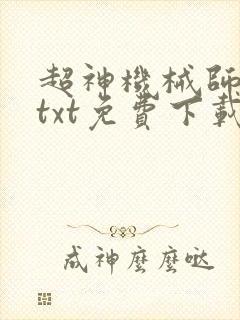 超神機械師
txt免費下載
成神麼麼噠